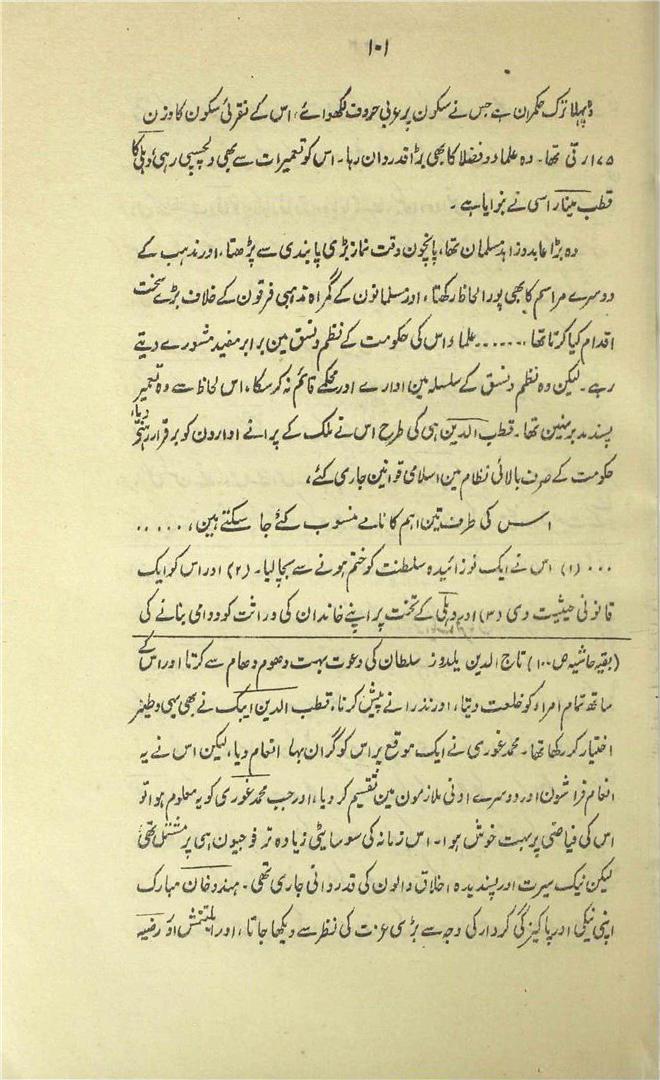 ۱۰۱
وہ پہلا ترک حکمران ہے جس نے سکون پر عربی حروف لکھوائے، اس کے نقرئی سکون کا وزن
۱۷۵ رتی تھا۔ وہ علما و فضلا کا بھی بڑا قدردان رہا۔ اس کو تعمیرات سے بھی دلچسپی رہی، دہلی کا
قطب مینار اسی نے بنوایا ہے۔
وہ بڑا عابد و زاہد مسلمان تھا، پانچون وقت نماز بڑی پابندی سے پڑھتا، اور مذہب کے
دوسرے مراسم کا بھی پورا لحاظ رکھتا، اور مسلمانون کے گمراہ مذہبی فرقون کے خلاف بڑے سخت
اقدام کیا کرتا تھا ....... علماء اس کی حکومت کے نظم و نسق مین برابر مفید مشورے دیتے
رہے۔ لیکن وہ نظم و نسق کے سلسلہ مین ادارے اور محکمے قائم نہ کر سکا، اس لحاظ سے وہ تعمیر
پسند مدبر نہین تھا۔ قطب الدین ہی کی طرح اس نے ملک کے پرانے ادارون کو برقرار رہنے دیا،
حکومت کے صرف بالائی نظام مین اسلامی قوانین جاری کئے،
اس کی طرف تین اہم کارنامے منسوب کئے جا سکتے ہین، .....
... (۱) اس نے ایک نوزائیدہ سلطنت کو ختم ہونے سے بچا لیا۔ (۲) اور اس کو ایک
قانونی حیثیت دی (۳) اور دہلی کے تخت پر اپنے خاندان کی وراثت کو دوامی بنانے کی
(بقیہ حاشیہ ص ۱۰۰) تاج الدین یلدوز سلطان کی دعوت بہت دھوم دھام سے کرتا اور اس کے
ساتھ تمام امراء کو خلعت دیتا، اور نذرانے پیش کرتا، قطب الدین ایبک نے بھی یہی وطیرہ
اختیار کر رکھا تھا۔ محمد غوری نے ایک موقع پر اس کو گران بہا انعام دیا، لیکن اس نے یہ
انعام فراشون اور دوسرے ادنی ملازمون مین تقسیم کر دیا، اور جب محمد غوری کو یہ معلوم ہوا تو
اس کی فیاضی پر بہت خوش ہوا۔ اس زمانہ کی سوسائٹی زیادہ تر فوجیون ہی پر مشتمل تھی
لیکن نیک سیرت اور پسندیدہ اخلاق والون کی قدردانی جاری تھی۔ ہندو خان مبارک
اپنی نیکی اور پاکیزگی کردار کی وجہ سے بڑی عزت کی نظر سے دیکھا جاتا، اور ایلتتمش اور رضیہ